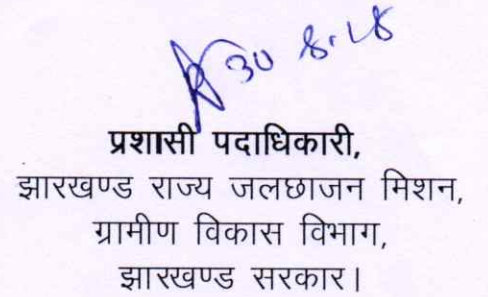 30 8.18
प्रशासी पदाधिकारी,
झारखण्ड राज्य जलछाजन मिशन,
ग्रामीण विकास विभाग,
झारखण्ड सरकार।